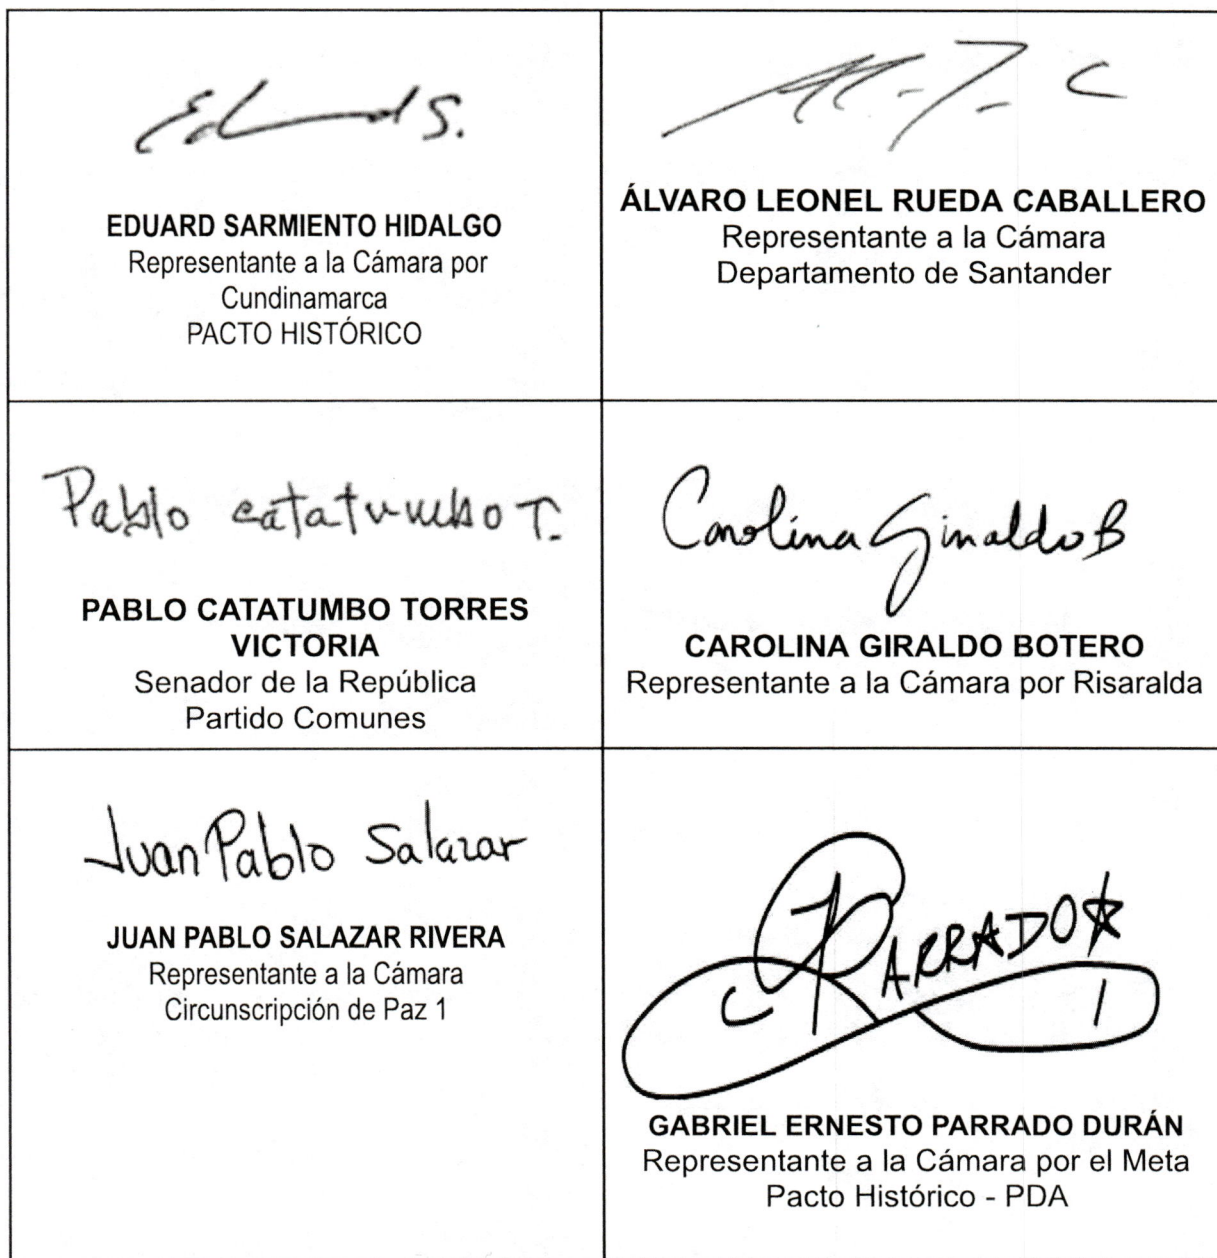 Eduard S.
EDUARD SARMIENTO HIDALGO
Representante a la Cámara por
Cundinamarca
PACTO HISTÓRICO
ÁLVARO LEONEL RUEDA CABALLERO
Representante a la Cámara
Departamento de Santander
Pablo catatumbo T.
PABLO CATATUMBO TORRES
VICTORIA
Senador de la República
Partido Comunes
Carolina Giraldo B
CAROLINA GIRALDO BOTERO
Representante a la Cámara por Risaralda
Juan Pablo Salazar
JUAN PABLO SALAZAR RIVERA
Representante a la Cámara
Circunscripción de Paz 1
PARRADO
GABRIEL ERNESTO PARRADO DURÁN
Representante a la Cámara por el Meta
Pacto Histórico - PDA